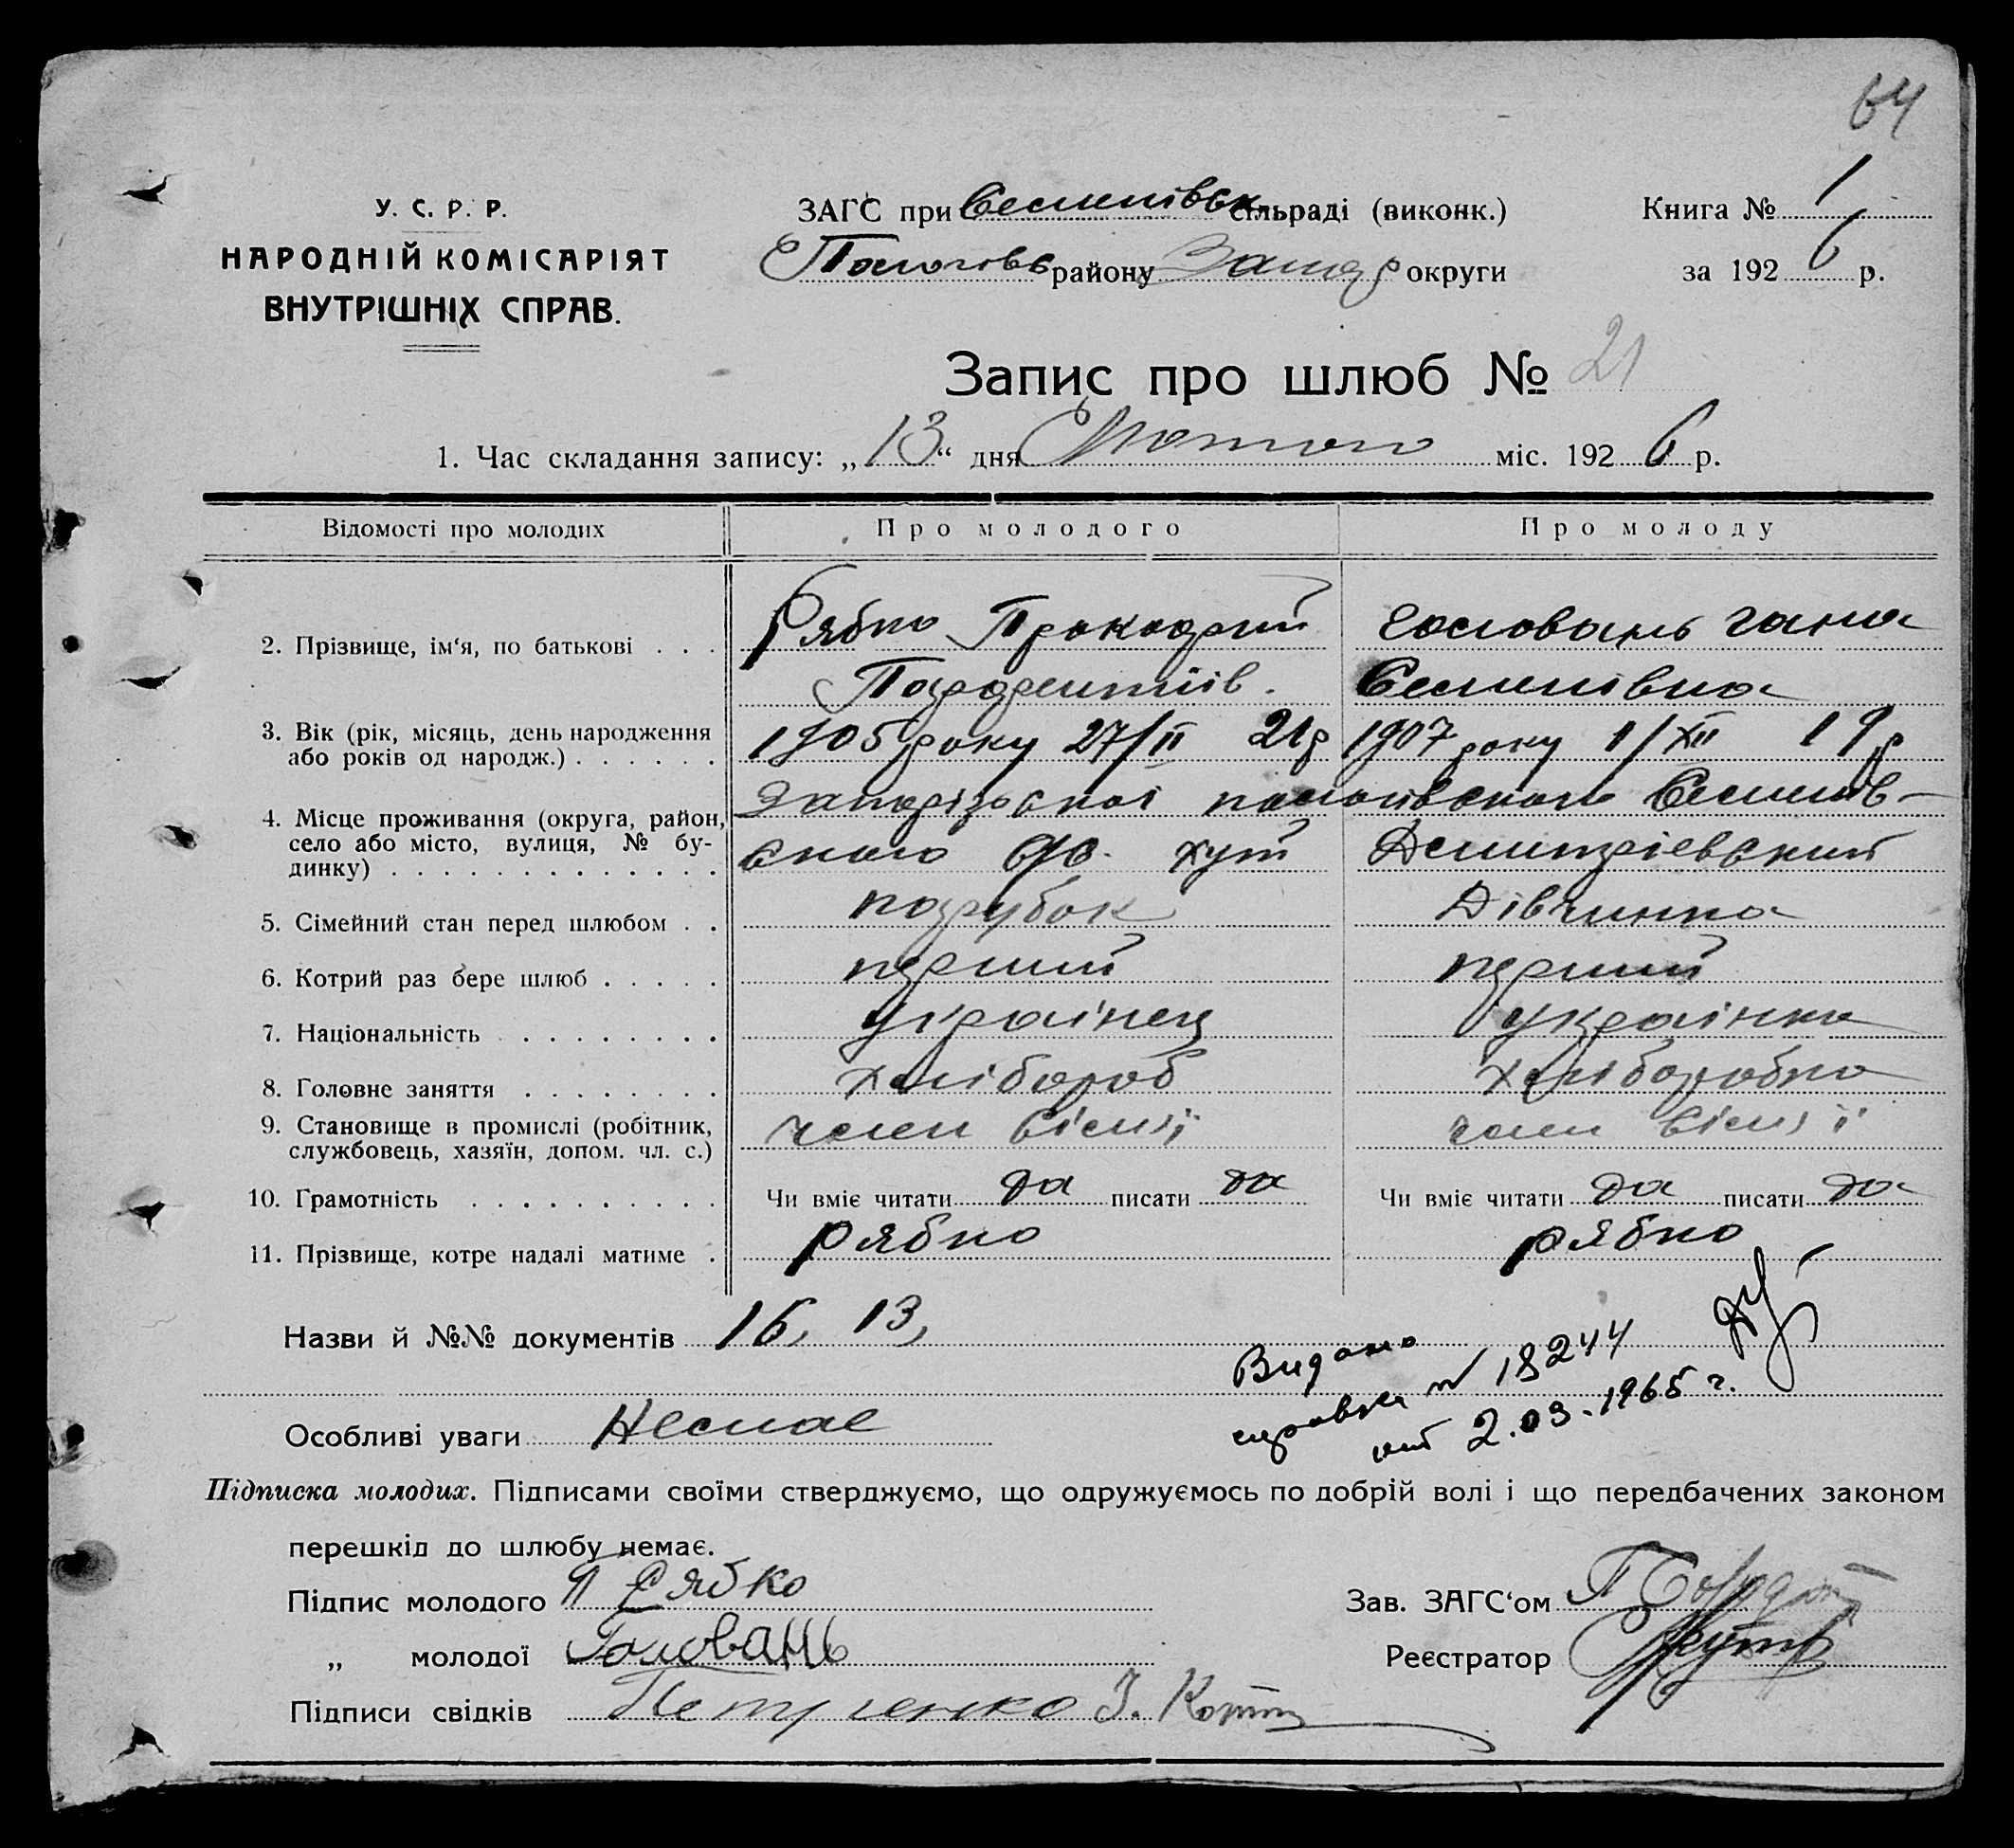 64
У. С. Р. Р.
НАРОДНІЙ КОМІСАРІЯТ
ВНУТРІШНІХ СПРАВ.
ЗАГС при Семенівськ. сільраді (виконк.)
Пологівс району Запор округи
Книга № 1
за 1926 р.
Запис про шлюб № 21
1. Час складання запису: „13“ дня Лютого міс. 1926 р.
Відомості про молодих
Про молодого
Про молоду
2. Прізвище, ім‘я, по батькові . . .
Рябко
Головань Гана
Семенівна
3. Вік (рік, місяць, день народження
або років од народж.) . . . . . .
1905 року 27/II 21 р
1907 року 1/XII 19 р
4. Місце проживання (округа, район,
село або місто, вулиця, № бу-
динку) . . . . . . . . . . . . .
Запорізької пологівского Семенів-
ского хут Демитріевский
5. Сімейний стан перед шлюбом . .
парубок
Дівчинка
6. Котрий раз бере шлюб . . . . .
перший
перший
7. Національність . . . . . . . .
українец
українка
8. Головне заняття . . . . . . . .
хлібороб
хліборобка
9. Становище в промислі (робітник,
службовець, хазяїн, допом. чл. с.)
член сім'ї
член сім'ї
10. Грамотність . . . . . . . . . .
Чи вміє читати да писати да
Чи вміє читати да писати да
11. Прізвище, котре надалі матиме .
Рябко
Рябко
Назви й №№ документів 16, 13,
Видано
справка № 18244
от 2.03.1965 г.
Особливі уваги Немае
Підписка молодих. Підписами своїми стверджуємо, що одружуємось по добрій волі і що передбачених законом
перешкід до шлюбу немає.
Підпис молодого П Рябко
„ молодої Головань
Підписи свідків
Зав. ЗАГС‘ом
Реєстратор